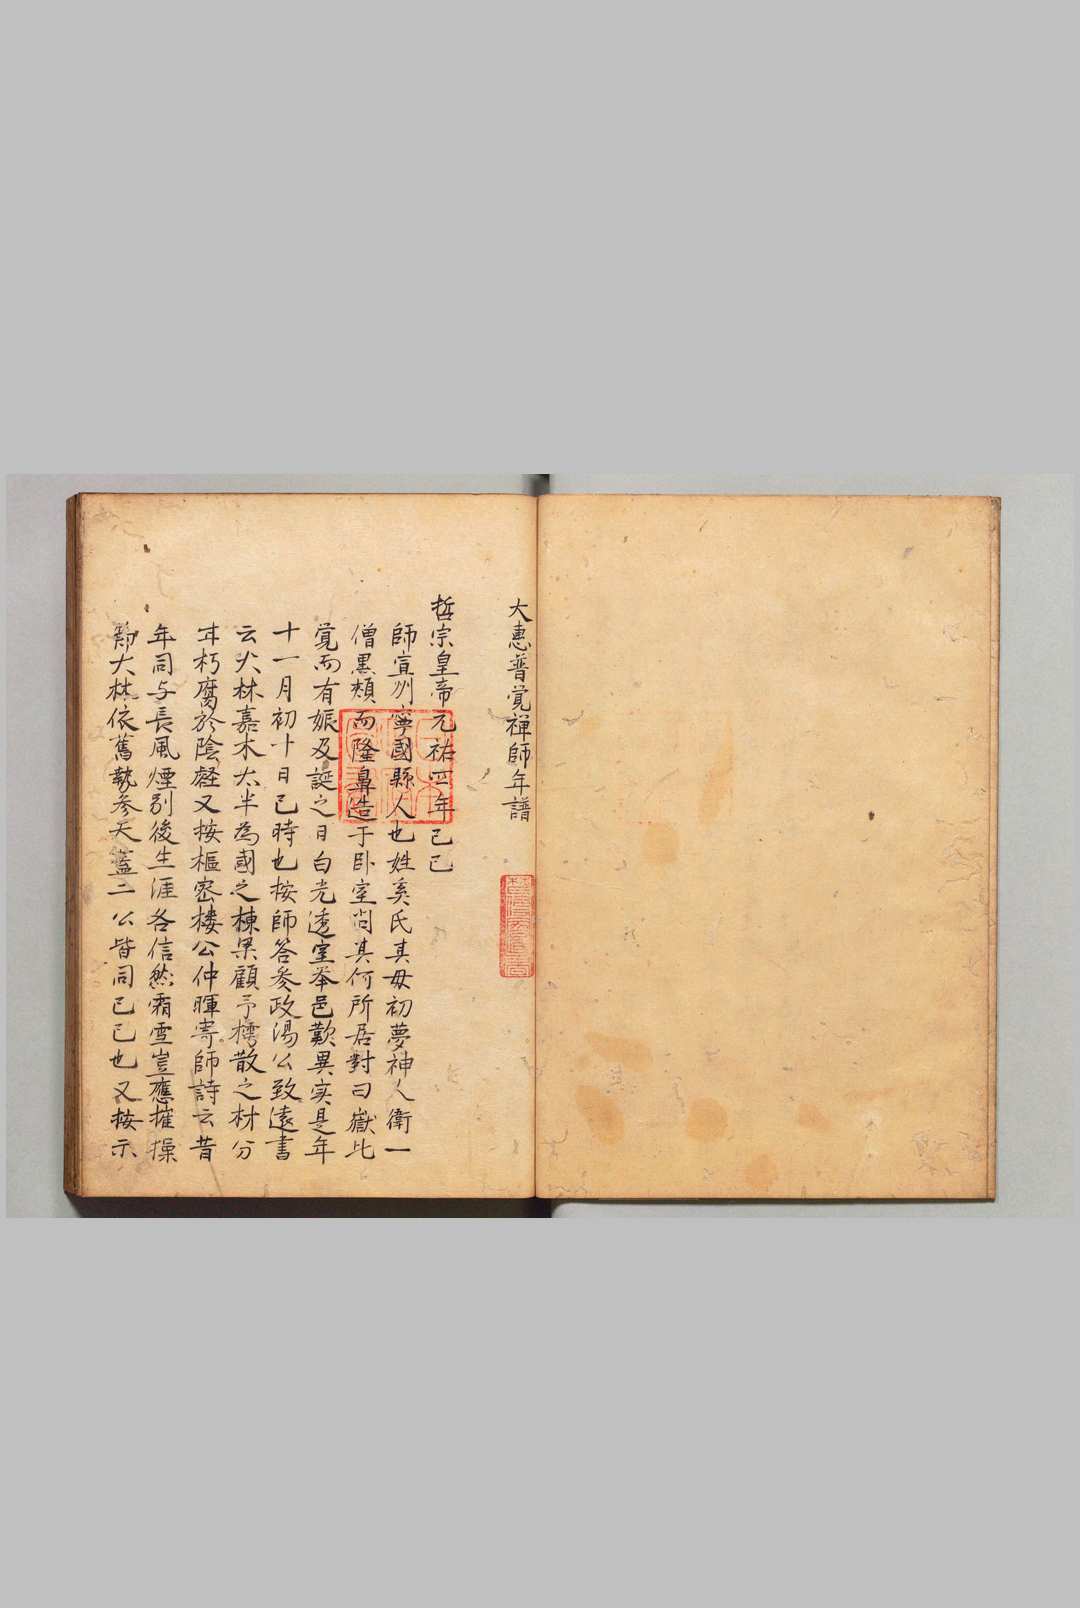 大惠普覚禅師年譜
哲宗皇帝元祐四年己巳
師宣州寧國縣人也姓奚氏其母初夢神人衛一
僧黒頰而隆鼻造于卧室问其何所居對曰嶽北
覚而有娠及誕之日白光透室举邑歎異实是年
十一月初十日巳時也按師答参政湯公致遠書
云火林嘉木太半為國之棟梁顧予樗散之材分
甘朽腐於陰壑又按樞密楼公仲暉寄師詩云昔
年同与長風煙别後生涯各信然霜雪豈應摧操
節大林依舊執参天蓋二公皆同己巳也又按示